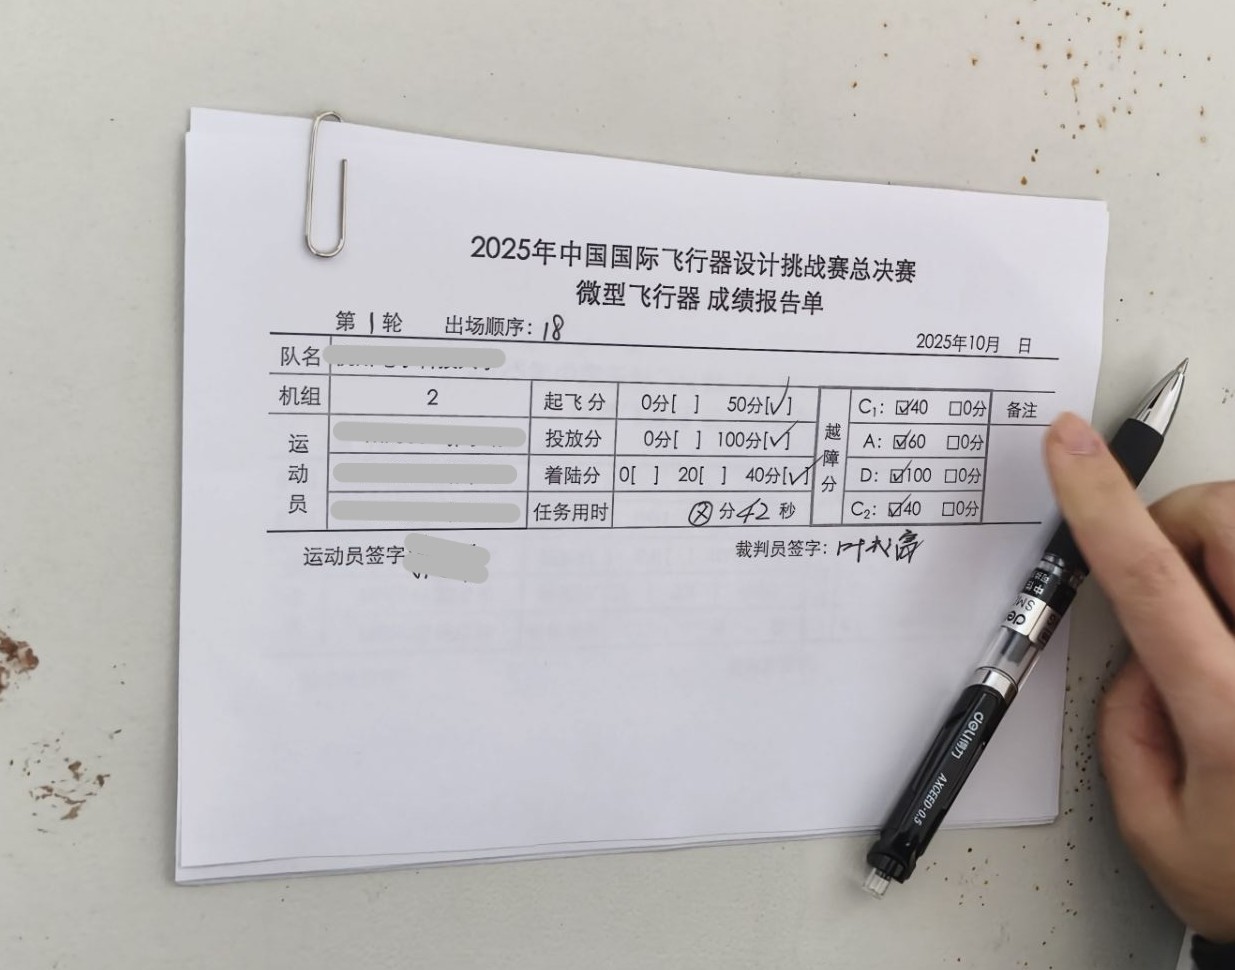 2025年中国国际飞行器设计挑战赛总决赛
微型飞行器 成绩报告单
第 1 轮 出场顺序：18
2025年10月 日
队名
机组 2 起飞分 0分[ ] 50分[✓] 越障分 C₁: ☑40 □0分 备注
运动员 投放分 0分[ ] 100分[✓] A: ☑60 □0分
着陆分 0[ ] 20[ ] 40分[✓] D: ☑100 □0分
任务用时 分42秒 C₂: ☑40 □0分
运动员签字 裁判员签字：
deli得力 AXCEED·0.5
deli